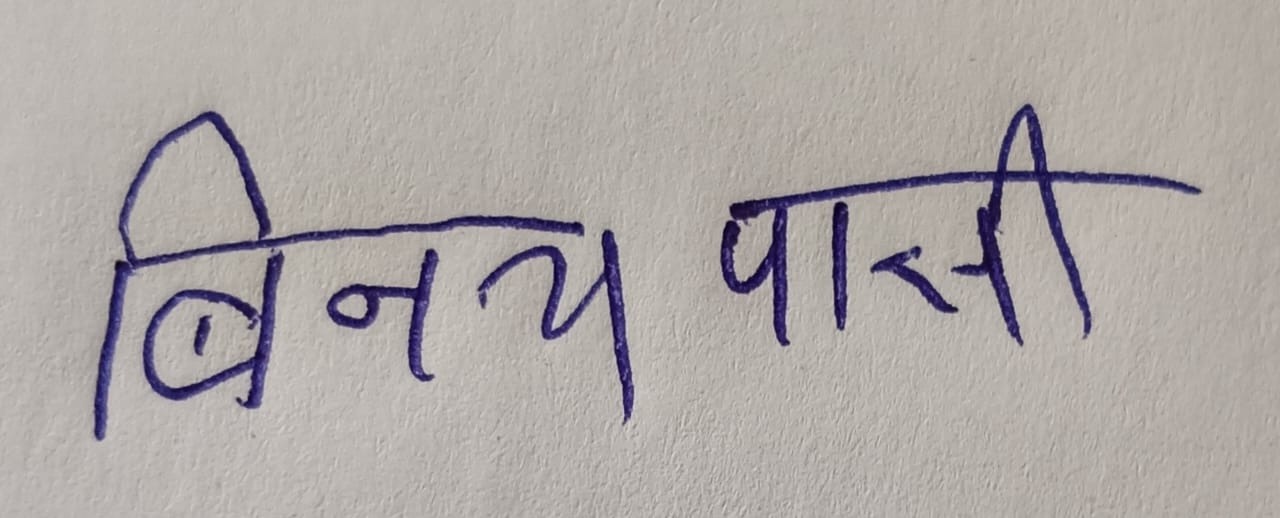 बिनय पासी